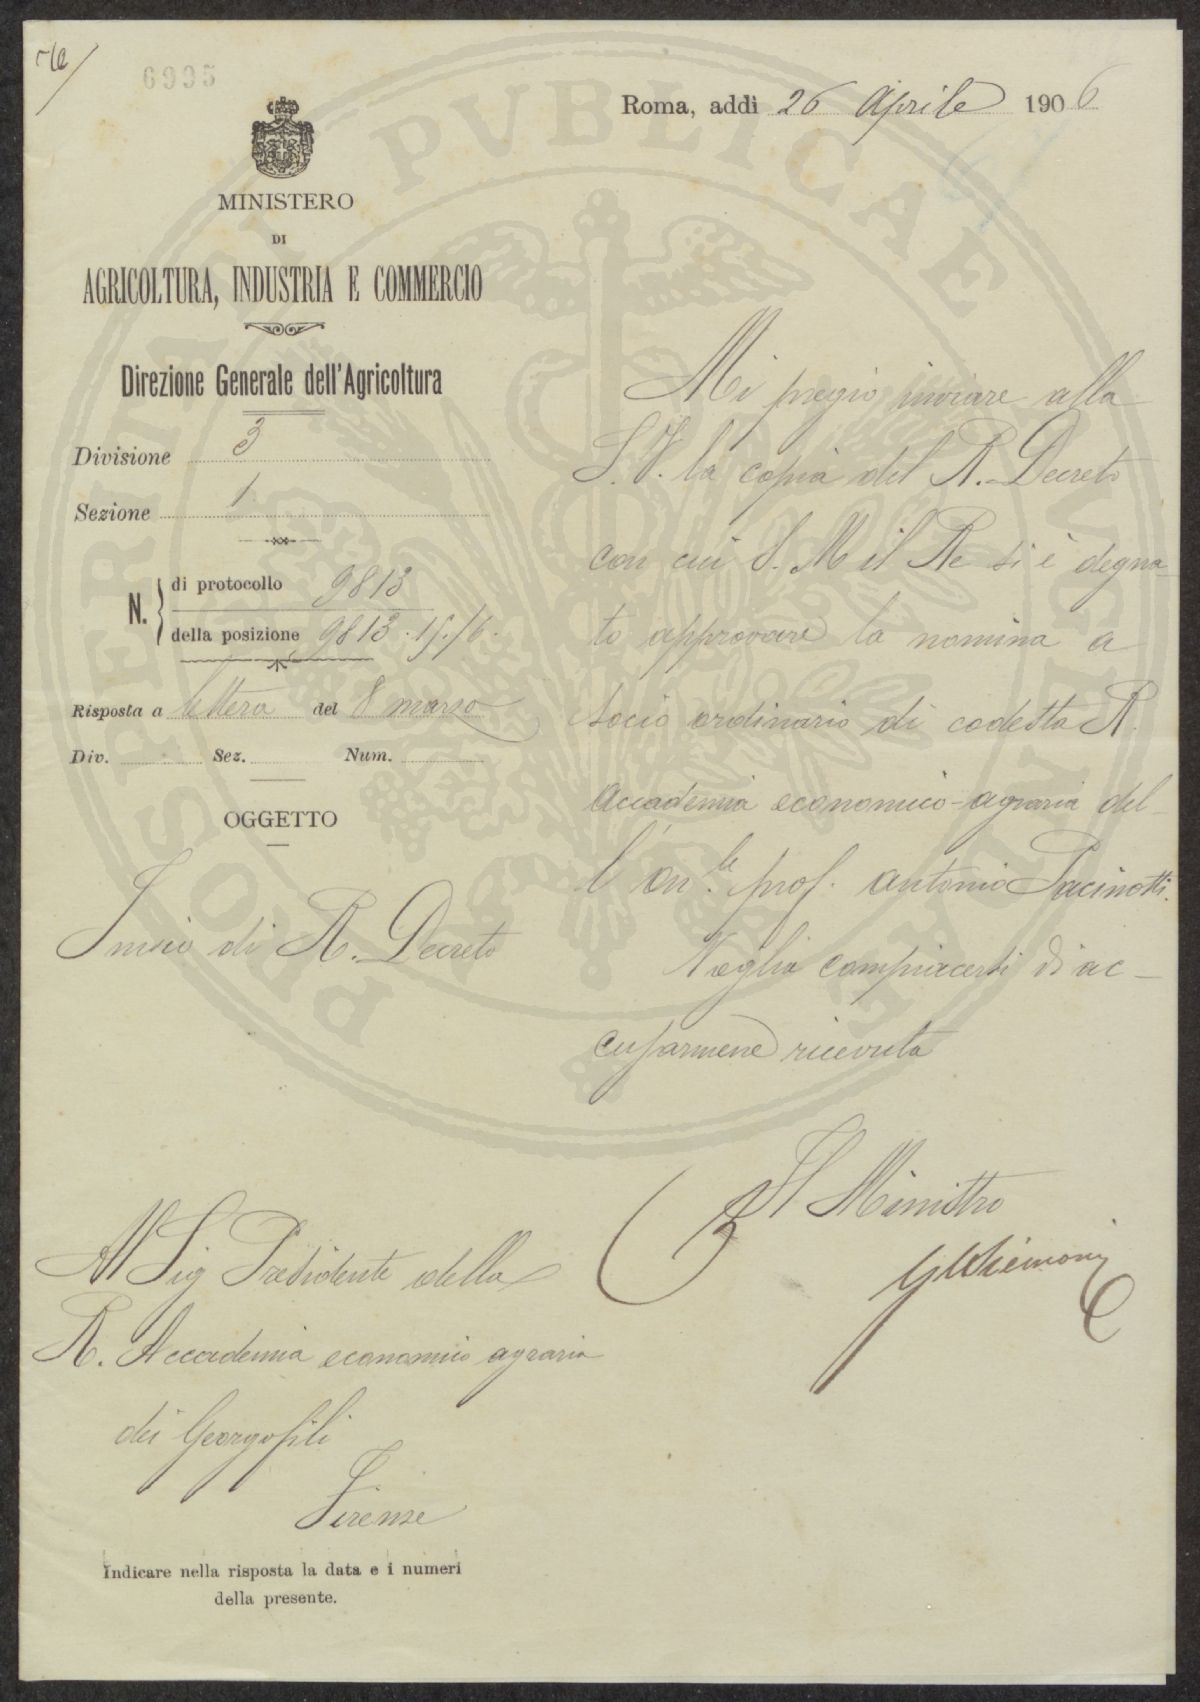 6995
Roma, addì 26 Aprile 1906
MINISTERO
DI
AGRICOLTURA, INDUSTRIA E COMMERCIO
Direzione Generale dell'Agricoltura
Divisione 3
Sezione 1
N. di protocollo 9813
della posizione 9813.
Risposta a lettera del 8 marzo
Div. Sez. Num.
OGGETTO
Invio di R. Decreto
Mi pregio inviare alla
S. V. la copia del R. Decreto
con cui S. M il Re si è degna-
to approvare la nomina a
socio ordinario di codesta R.
Accademia economico-agraria del-
l'on.le prof. Antonio Pacinotti.
Voglia compiacersi di ac-
cusarmene ricevuta
Il Ministro
Al Sig Presidente della
R. Accademia economico agraria
dei Georgofili
Firenze
Indicare nella risposta la data e i numeri
della presente.
PROSPERITATI PVBLICAE AVGENDAE